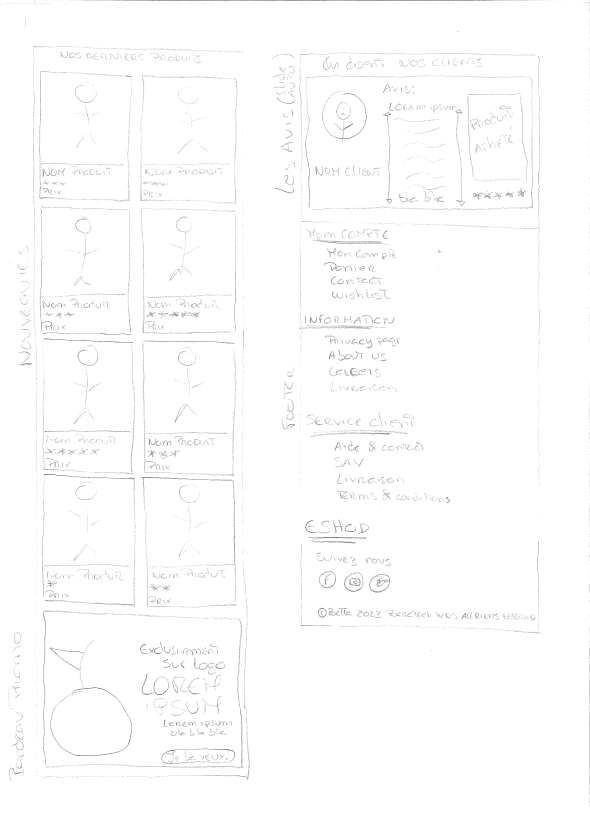 NOS DERNIERS PRODUITS
Nouveautés
NOM PRODUIT
***
PRIX
NOM PRODUIT
PRIX
Nom Produit
***
PRIX
Nom Produit
*****
PRIX
Nom Produit
*****
PRIX
NOM PRODUIT
PRIX
Nom Produit
*
PRIX
Nom Produit
**
PRIX
Promo
Exclusivment
sur logo
LOREM
IPSUM
Lorem ipsum
bla bla bla
Je le veux!
Les Avis (Slide
auto)
NOS CLIENTS
AVIS:
Lorem ipsum
bla bla
NOM CLIENT
PRODUIT
ACHETÉ
*****
FOOTER
MON COMPTE
Mon Compte
Panier
Contact
Wishlist
INFORMATION
Privacy page
About us
Livraison
SERVICE client
Aide & contact
SAV
Livraison
Terms & conditions
ESHOP
SUIVEZ nous
2023